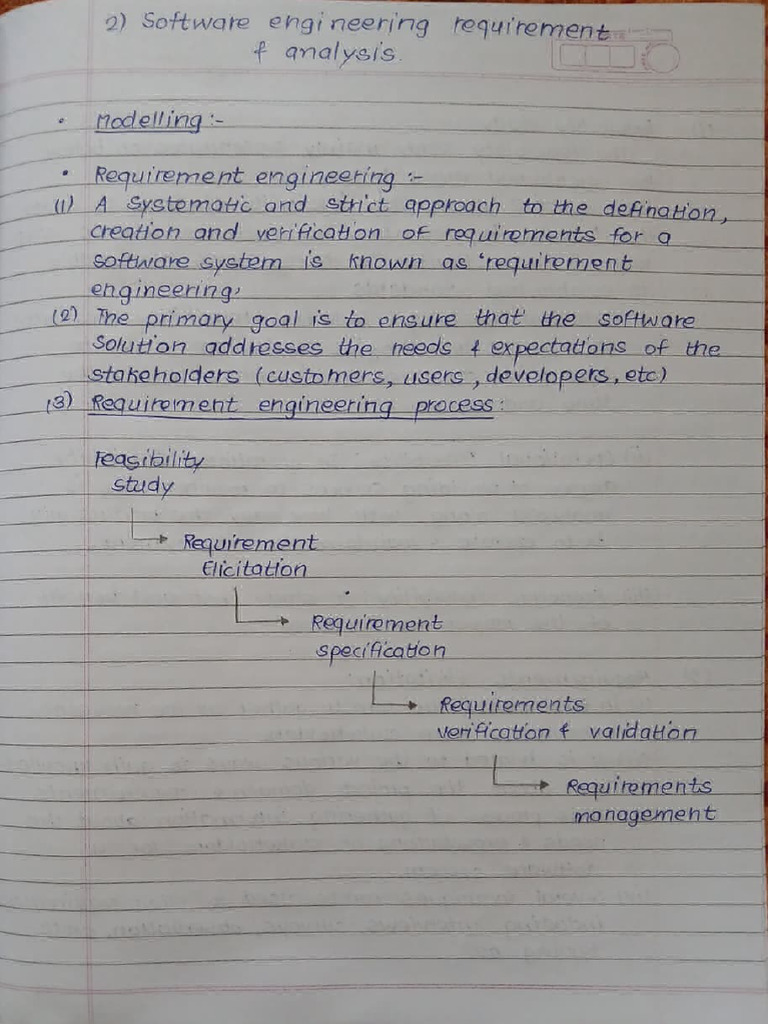 2) Software engineering requirement
& analysis.
• Modelling :-
• Requirement engineering :-
(1) A systematic and strict approach to the defination,
creation and verification of requirements for a
software system is known as 'requirement
engineering'
(2) The primary goal is to ensure that the software
solution addresses the needs & expectations of the
stakeholders (customers, users, developers, etc)
(3) Requirement engineering process:
Feasibility
study
Requirement
Elicitation
Requirement
specification
Requirements
verification & validation
Requirements
management